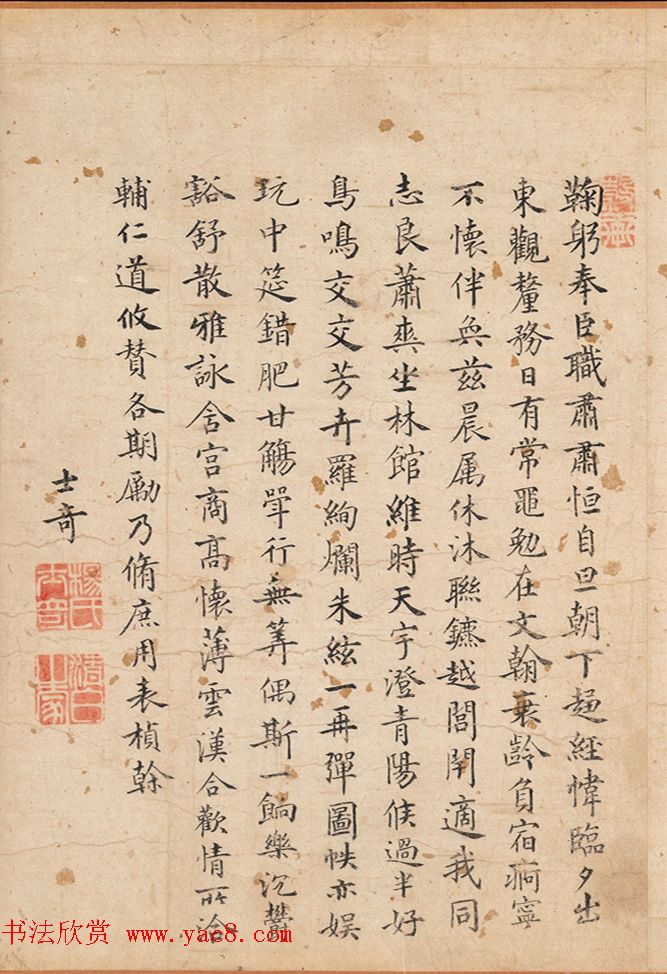 鞠躬奉臣職肅肅恒自旦朝下趨經幃臨夕出
東觀釐務日有常黽勉在文翰衰齡負宿痾寧
不懷伴奐茲晨属休沐聯鑣越閭閈適我同
志良蕭爽坐林館維時天宇澄青陽候過半好
鳥鳴交交芳卉羅絢爛朱絃一再彈圖帙亦娱
玩中筵錯肥甘觴斝行無筭偶斯一餉樂沉鬱
豁舒散雅詠含宫商高懷薄雲漢合歡情所洽
輔仁道攸賛各期勵乃脩庶用表楨榦
士奇
楊氏
士奇
书法欣赏 www.yac8.com